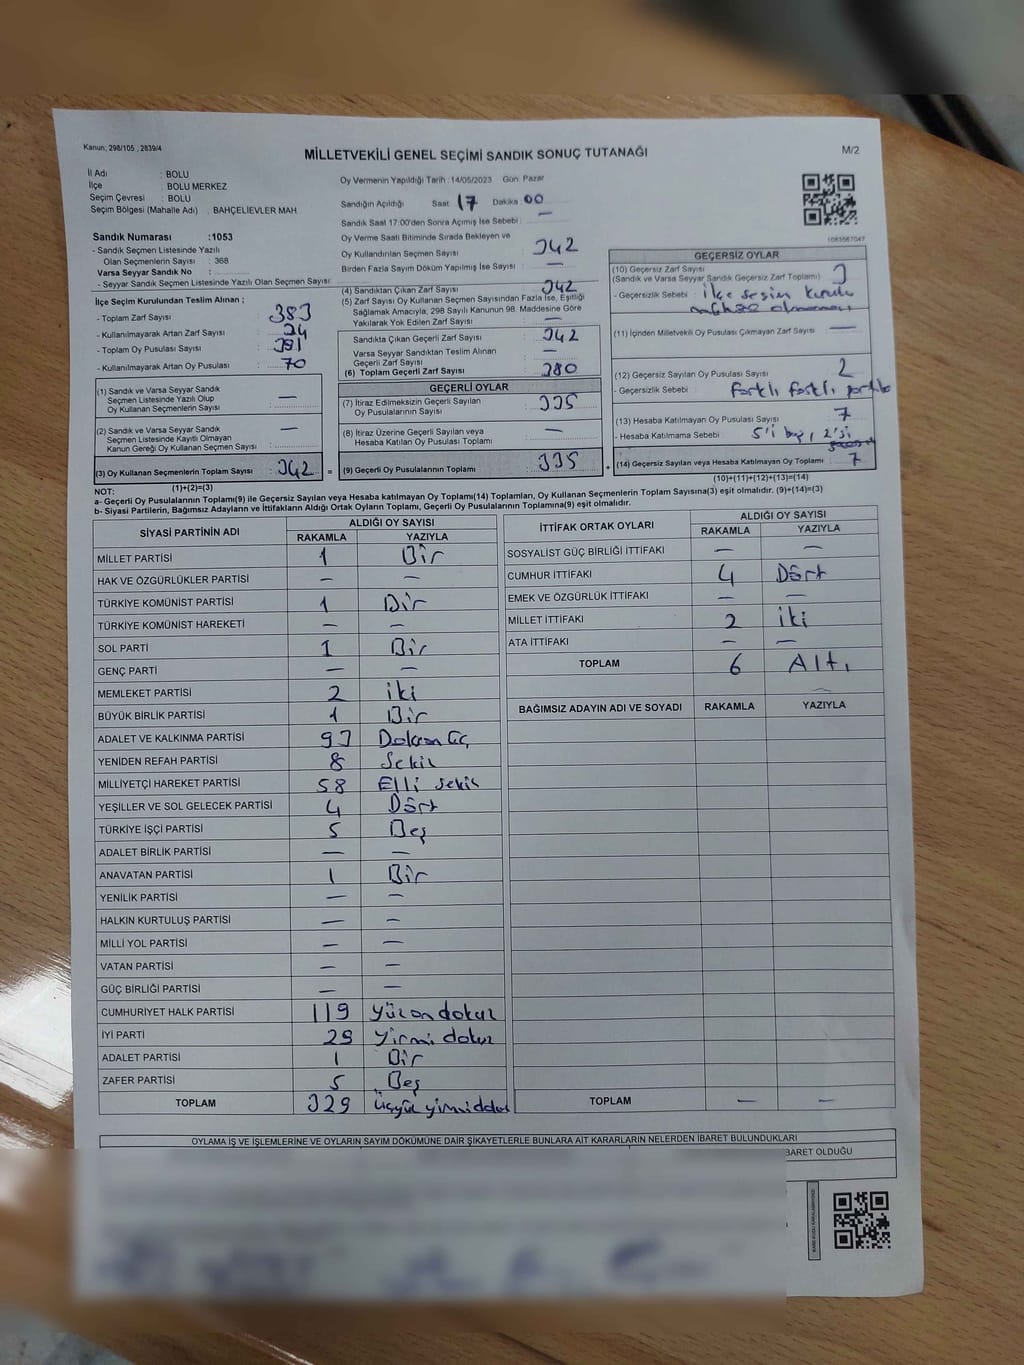 Kanun; 298/105 , 2839/4
MİLLETVEKİLİ GENEL SEÇİMİ SANDIK SONUÇ TUTANAĞI
M/2
İl Adı : BOLU
İlçe : BOLU MERKEZ
Seçim Çevresi : BOLU
Seçim Bölgesi (Mahalle Adı) : BAHÇELİEVLER MAH
Sandık Numarası :1053
- Sandık Seçmen Listesinde Yazılı
Olan Seçmenlerin Sayısı : 368
Varsa Seyyar Sandık No :
- Seyyar Sandık Seçmen Listesinde Yazılı Olan Seçmen Sayısı
İlçe Seçim Kurulundan Teslim Alınan ;
- Toplam Zarf Sayısı : 383
- Kullanılmayarak Artan Zarf Sayısı :
- Toplam Oy Pusulası Sayısı : 391
- Kullanılmayarak Artan Oy Pusulası : 70
(1) Sandık ve Varsa Seyyar Sandık
Seçmen Listesinde Yazılı Olup
Oy Kullanan Seçmenlerin Sayısı : —
(2) Sandık ve Varsa Seyyar Sandık
Seçmen Listesinde Kayıtlı Olmayan
Kanun Gereği Oy Kullanan Seçmen Sayısı : —
(3) Oy Kullanan Seçmenlerin Toplam Sayısı : 342 =
(1)+(2)=(3)
Oy Vermenin Yapıldığı Tarih : 14/05/2023 Gün Pazar
Sandığın Açıldığı Saat 17 Dakika 00
Sandık Saat 17:00'den Sonra Açımış İse Sebebi : —
Oy Verme Saati Bitiminde Sırada Bekleyen ve
Oy Kullandırılan Seçmen Sayısı : 342
Birden Fazla Sayım Döküm Yapılmış İse Sayısı : —
(4) Sandıktan Çıkan Zarf Sayısı : 342
(5) Zarf Sayısı Oy Kullanan Seçmen Sayısından Fazla İse, Eşitliği
Sağlamak Amacıyla; 298 Sayılı Kanunun 98. Maddesine Göre
Yakılarak Yok Edilen Zarf Sayısı : —
Sandıkta Çıkan Geçerli Zarf Sayısı : 342
Varsa Seyyar Sandıktan Teslim Alınan
Geçerli Zarf Sayısı : —
(6) Toplam Geçerli Zarf Sayısı : 380
GEÇERLİ OYLAR
(7) İtiraz Edilmeksizin Geçerli Sayılan
Oy Pusulalarının Sayısı : 335
(8) İtiraz Üzerine Geçerli Sayılan veya
Hesaba Katılan Oy Pusulası Toplamı : —
(9) Geçerli Oy Pusulalarının Toplamı : 335 +
1083587047
GEÇERSİZ OYLAR
(10) Geçersiz Zarf Sayısı
(Sandık ve Varsa Seyyar Sandık Geçersiz Zarf Toplamı) : 3
- Geçersizlik Sebebi : ilçe seçim kurulu
(11) İçinden Milletvekili Oy Pusulası Çıkmayan Zarf Sayısı : —
(12) Geçersiz Sayılan Oy Pusulası Sayısı : 2
- Geçersizlik Sebebi : farklı farklı
(13) Hesaba Katılmayan Oy Pusulası Sayısı : 7
- Hesaba Katılmama Sebebi : 5'i boş, 2'si
(14) Geçersiz Sayılan veya Hesaba Katılmayan Oy Toplamı : 7
(10)+(11)+(12)+(13)=(14)
NOT:
a- Geçerli Oy Pusulalarının Toplamı(9) ile Geçersiz Sayılan veya Hesaba katılmayan Oy Toplamı(14) Toplamları, Oy Kullanan Seçmenlerin Toplam Sayısına(3) eşit olmalıdır. (9)+(14)=(3)
b- Siyasi Partilerin, Bağımsız Adayların ve İttifakların Aldığı Ortak Oyların Toplamı, Geçerli Oy Pusulalarının Toplamına(9) eşit olmalıdır.
SİYASİ PARTİNİN ADI ALDIĞI OY SAYISI
RAKAMLA YAZIYLA
MİLLET PARTİSİ 1 Bir
HAK VE ÖZGÜRLÜKLER PARTİSİ — —
TÜRKİYE KOMÜNİST PARTİSİ 1 Bir
TÜRKİYE KOMÜNİST HAREKETİ — —
SOL PARTİ 1 Bir
GENÇ PARTİ — —
MEMLEKET PARTİSİ 2 iki
BÜYÜK BİRLİK PARTİSİ 1 Bir
ADALET VE KALKINMA PARTİSİ 93 Doksan üç
YENİDEN REFAH PARTİSİ 8 Sekiz
MİLLİYETÇİ HAREKET PARTİSİ 58 Elli sekiz
YEŞİLLER VE SOL GELECEK PARTİSİ 4 Dört
TÜRKİYE İŞÇİ PARTİSİ 5 Beş
ADALET BİRLİK PARTİSİ — —
ANAVATAN PARTİSİ 1 Bir
YENİLİK PARTİSİ — —
HALKIN KURTULUŞ PARTİSİ — —
MİLLİ YOL PARTİSİ — —
VATAN PARTİSİ — —
GÜÇ BİRLİĞİ PARTİSİ — —
CUMHURİYET HALK PARTİSİ 119 yüzondokuz
İYİ PARTİ 29 yirmi dokuz
ADALET PARTİSİ 1 Bir
ZAFER PARTİSİ 5 Beş
TOPLAM 329
İTTİFAK ORTAK OYLARI ALDIĞI OY SAYISI
RAKAMLA YAZIYLA
SOSYALİST GÜÇ BİRLİĞİ İTTİFAKI — —
CUMHUR İTTİFAKI 4 Dört
EMEK VE ÖZGÜRLÜK İTTİFAKI — —
MİLLET İTTİFAKI 2 iki
ATA İTTİFAKI — —
TOPLAM 6 Altı
BAĞIMSIZ ADAYIN ADI VE SOYADI RAKAMLA YAZIYLA
TOPLAM — —
OYLAMA İŞ VE İŞLEMLERİNE VE OYLARIN SAYIM DÖKÜMÜNE DAİR ŞİKAYETLERLE BUNLARA AİT KARARLARIN NELERDEN İBARET BULUNDUKLARI
BARET OLDUĞU